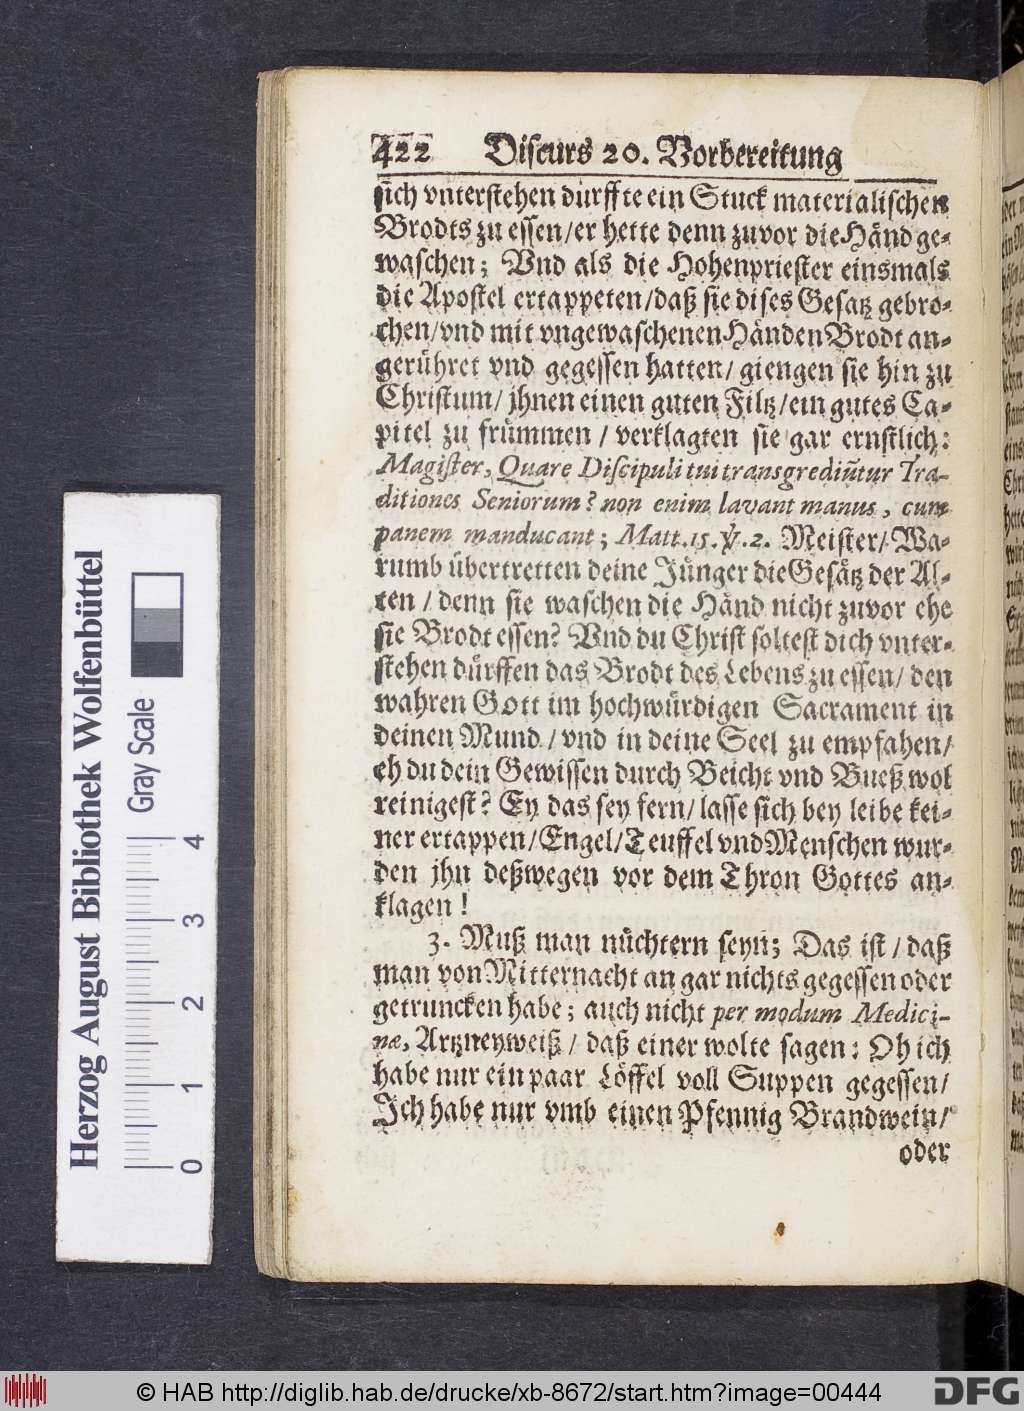 422 Discurs 20. Vorbereitung
sich vnterstehen durffte ein Stuck materialischen
Brodts zu essen/er hette denn zuvor die Händ ge-
waschen; Vnd als die Hohenpriester einsmals
die Apostel ertappeten/daß sie dises Gesatz gebro-
chen/vnd mit vngewaschenen Händen Brodt an-
gerühret vnd gegessen hatten/ giengen sie hin zu
Christum/ jhnen einen guten Filtz/ein gutes Ca-
pitel zu frümmen / verklagten sie gar ernstlich:
Magister, Quare Discipuli tui transgrediũtur Tra-
ditiones Seniorum? non enim lavant manus, cum
panem manducant; Matt. 15. ℣. 2. Meister/ Wa-
rumb übertretten deine Jünger die Gesätz der Al-
ten / denn sie waschen die Händ nicht zuvor ehe
sie Brodt essen? Vnd du Christ soltest dich vnter-
stehen dürffen das Brodt des Lebens zu essen/ den
wahren Gott im hochwürdigen Sacrament in
deinen Mund / vnd in deine Seel zu empfahen/
eh du dein Gewissen durch Beicht vnd Bueß wol
reinigest? Ey das sey fern/ lasse sich bey leibe kei-
ner ertappen/Engel/Teuffel vnd Menschen wur-
den jhn deßwegen vor dem Thron Gottes an-
klagen!
3. Muß man nüchtern seyn; Das ist / daß
man von Mitternacht an gar nichts gegessen oder
getruncken habe; auch nicht per modum Medici-
næ, Artzneyweiß / daß einer wolte sagen: Oh ich
habe nur ein paar Löffel voll Suppen gegessen/
Jch habe nur vmb einen Pfennig Brandwein/
oder
Herzog August Bibliothek Wolfenbüttel
Gray Scale
0 1 2 3 4
© HAB http://diglib.hab.de/drucke/xb-8672/start.htm?image=00444
DFG